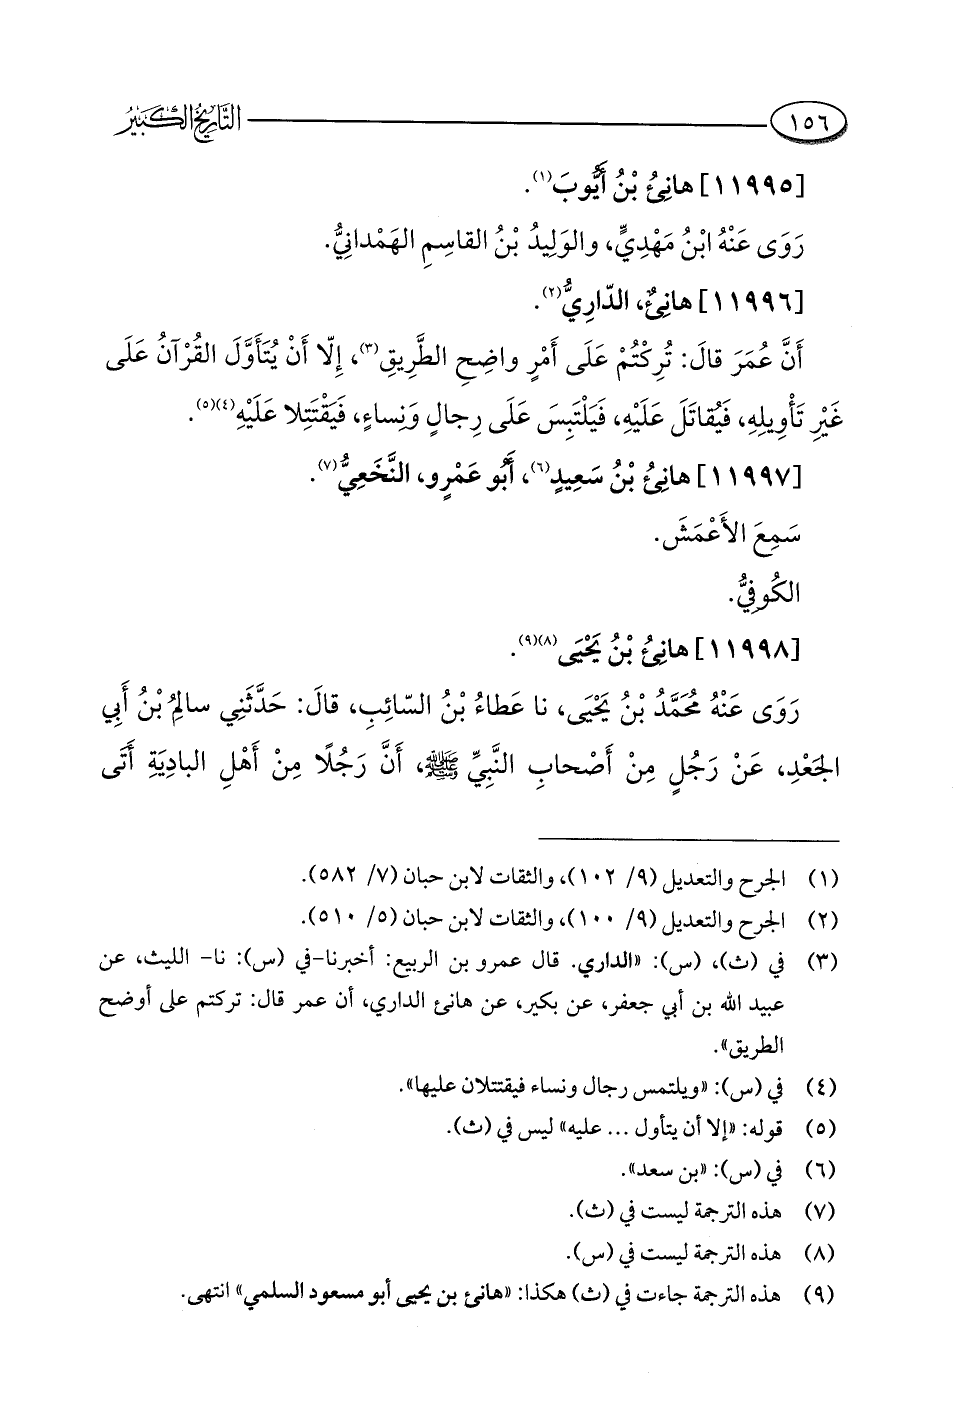 ١٥٦ التاريخ الكبير
[١١٩٩٥] هانِئُ بْنُ أَيُّوبَ(١).
رَوَى عَنْهُ ابْنُ مَهْدِيٍّ، والوَلِيدُ بْنُ القاسِمِ الهَمْدانِيُّ.
[١١٩٩٦] هانِئٌ، الدّارِيُّ(٢).
أَنَّ عُمَرَ قالَ: تُرِكْتُمْ عَلَى أَمْرٍ واضِحِ الطَّرِيقِ(٣)، إِلّا أَنْ يُتَأَوَّلَ القُرْآنُ عَلَى
غَيْرِ تَأْوِيلِهِ، فَيُقاتَلَ عَلَيْهِ، فَيَلْتَبِسَ عَلَى رِجالٍ وَنِساءٍ، فَيَقْتَتِلا عَلَيْهِ(٤)(٥).
[١١٩٩٧] هانِئُ بْنُ سَعِيدٍ(٦)، أَبُو عَمْرٍو، النَّخَعِيُّ(٧).
سَمِعَ الأَعْمَشَ.
الكُوفِيُّ.
[١١٩٩٨] هانِئُ بْنُ يَحْيَى(٨)(٩).
رَوَى عَنْهُ مُحَمَّدُ بْنُ يَحْيَى، نا عَطاءُ بْنُ السّائِبِ، قالَ: حَدَّثَنِي سالِمُ بْنُ أَبِي
الجَعْدِ، عَنْ رَجُلٍ مِنْ أَصْحابِ النَّبِيِّ ﷺ، أَنَّ رَجُلًا مِنْ أَهْلِ البادِيَةِ أَتَى
(١) الجرح والتعديل (٩/ ١٠٢)، والثقات لابن حبان (٧/ ٥٨٢).
(٢) الجرح والتعديل (٩/ ١٠٠)، والثقات لابن حبان (٥/ ٥١٠).
(٣) في (ث)، (س): «الداري. قال عمرو بن الربيع: أخبرنا-في (س): نا- الليث، عن
عبيد الله بن أبي جعفر، عن بكير، عن هانئ الداري، أن عمر قال: تركتم على أوضح
الطريق».
(٤) في (س): «ويلتمس رجال ونساء فيقتتلان عليها».
(٥) قوله: «إلا أن يتأول ... عليه» ليس في (ث).
(٦) في (س): «بن سعد».
(٧) هذه الترجمة ليست في (ث).
(٨) هذه الترجمة ليست في (س).
(٩) هذه الترجمة جاءت في (ث) هكذا: «هانئ بن يحيى أبو مسعود السلمي» انتهى.